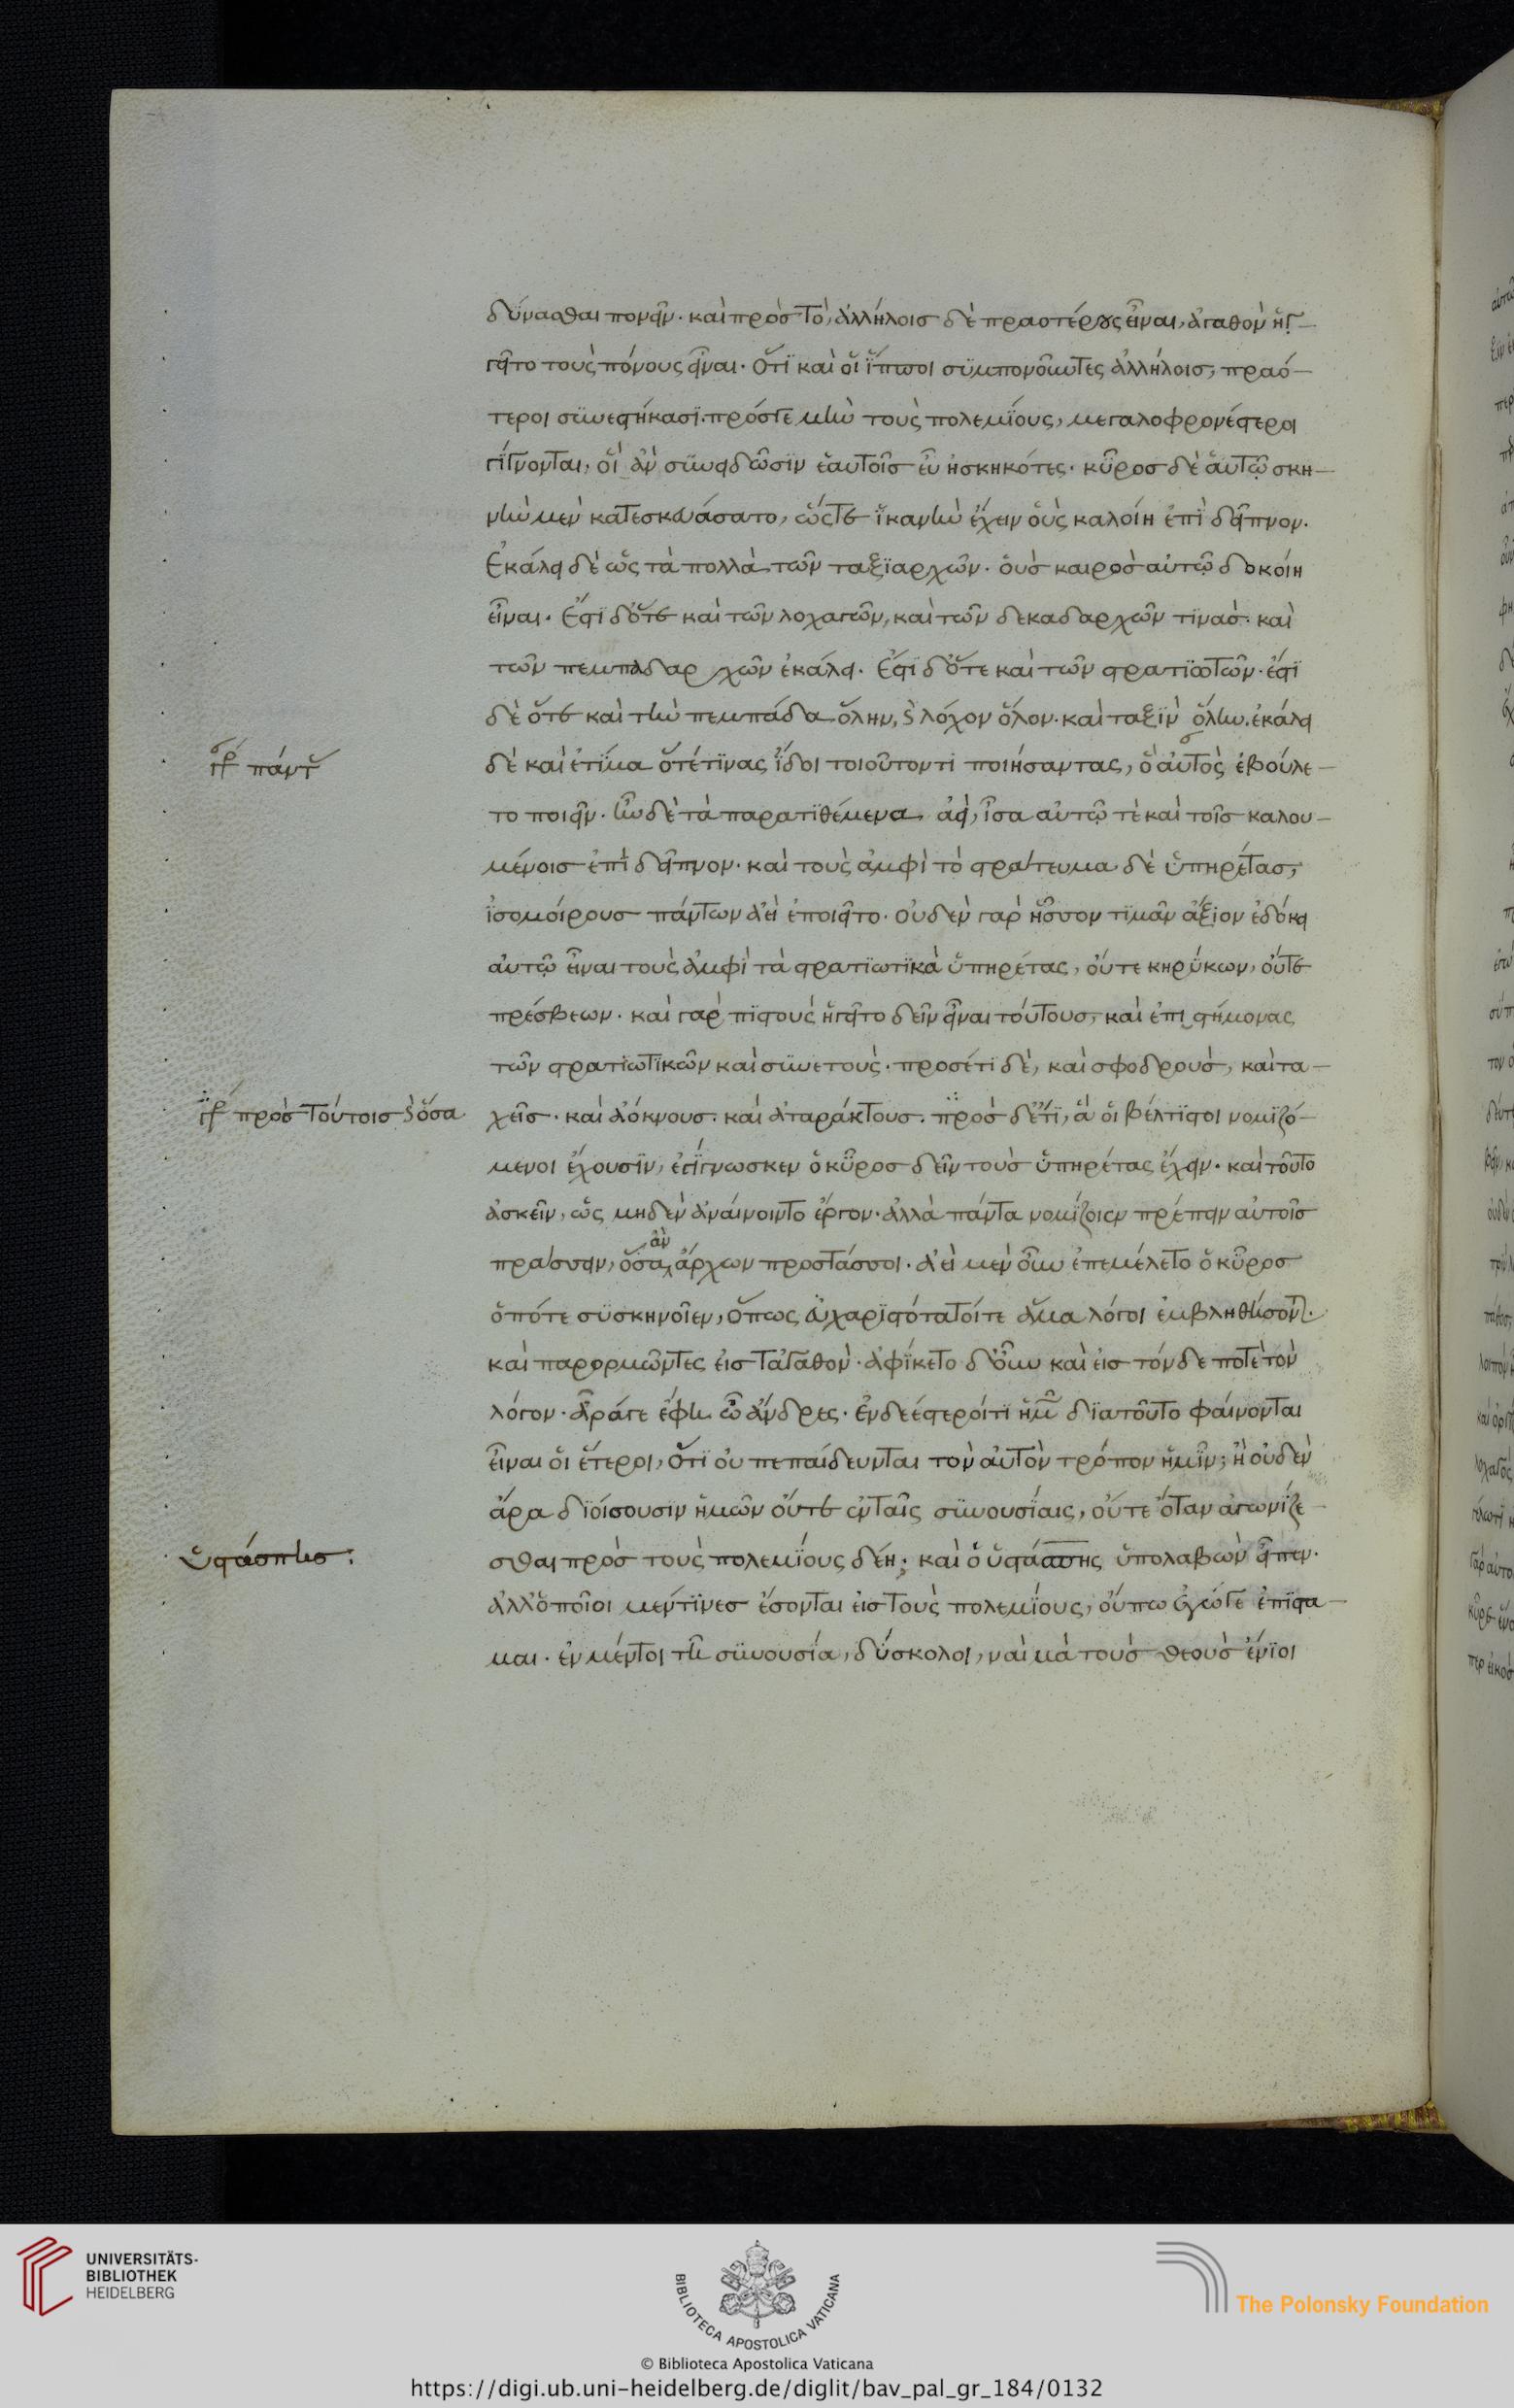 δύνασθαι πονεῖν. καὶ πρὸς τὸ, ἀλλήλοις δὲ πραοτέρους εἶναι, ἀγαθὸν ἡγ-
γεῖτο τοὺς πόνους εἶναι. ὅτι καὶ οἱ ἵπποι συμπονοῦντες ἀλλήλοις, πραό-
τεροι συνεστήκασι. πρόστε μὴν τοὺς πολεμίους, μεγαλοφρονέστεροι
γίγνονται, οἳ ἂν συνειδῶσιν ἑαυτοῖς εὖ ἠσκηκότες. κῦρος δὲ ἁυτῷ σκη-
νὴν μὲν κατεσκευάσατο, ὥστε ἱκανὴν ἔχειν οὓς καλοίη ἐπὶ δεῖπνον.
Ἐκάλει δὲ ὡς τὰ πολλὰ τῶν ταξιαρχῶν. οὓς καιρὸς αὐτῷ δοκοίη
εἶναι. Ἔστι δ' ὅτε καὶ τῶν λοχαγῶν, καὶ τῶν δεκαδαρχῶν τινὰς. καὶ
τῶν πεμπαδαρχῶν ἐκάλει. Ἔστι δ' ὅτε καὶ τῶν στρατιωτῶν. ἔστι
δὲ ὅτε καὶ τὴν πεμπάδα ὅλην, καὶ λόχον ὅλον. καὶ ταξιν ὅλην. ἐκάλει
γρ πάντας
δὲ καὶ ἐτίμα ὁτέ τινας ἴδοι τοιοῦτον τι ποιήσαντας, ὃ αὐτὸς ἐβούλε-
το ποιεῖν. ἦν δὲ τὰ παρατιθέμενα ἀεὶ, ἶσα αὐτῷ τὲ καὶ τοῖς καλου-
μένοις ἐπὶ δεῖπνον. καὶ τοὺς ἀμφὶ τὸ στράτευμα δὲ ὑπηρέτας,
ἰσομοίρους πάντων ἀεὶ ἐποιεῖτο. οὐδὲν γὰρ ἧσσον τιμᾶν ἄξιον ἐδόκει
αὐτῷ εἶναι τοὺς ἀμφὶ τὰ στρατιωτικὰ ὑπηρέτας, οὔτε κηρύκων, οὔτε
πρέσβεων. καὶ γὰρ πιστοὺς ἡγεῖτο δεῖν εἶναι τούτους, καὶ ἐπιστήμονας
τῶν στρατιωτικῶν καὶ συνετοὺς. προσέτι δὲ, καὶ σφοδροὺς, καὶ τα-
γρ πρὸς τούτοις καὶ ὅσα
χεῖς. καὶ ἀόκνους. καὶ ἀταράκτους. πρὸς δ' ἔτι, ἃ οἱ βέλτιστοι νομιζό-
μενοι ἔχουσιν, ἐγίγνωσκεν ὁ κῦρος δεῖν τοὺς ὑπηρέτας ἔχειν. καὶ τοῦτο
ἀσκεῖν, ὡς μηδὲν ἀναίνοιντο ἔργον. ἀλλὰ πάντα νομίζοιεν πρέπειν αὐτοῖς
πράσσειν, ὅσα ἂν ἄρχων προστάσσοι. ἀεὶ μὲν οὖν ἐπεμέλετο ὁ κῦρος
ὁπότε συσκηνοῖεν, ὅπως εὐχαριστότατοί τε ἅμα λόγοι ἐμβληθήσονται.
καὶ παρορμῶντες εἰς τἀγαθὸν. ἀφίκετο δ' οὖν καὶ εἰς τόνδε ποτὲ τὸν
λόγον. ἆρά γε ἔφη ὦ ἄνδρες. ἐνδεέστεροί τι ἡμῶν διατοῦτο φαίνονται
εἶναι οἱ ἕτεροι, ὅτι οὐ πεπαίδευνται τὸν αὐτὸν τρόπον ἡμῖν; ἢ οὐδὲν
ἄρα διοίσουσιν ἡμῶν οὔτε ἐν ταῖς συνουσίαις, οὔτε ὅταν ἀγωνίζε-
ὑστάσπης:
σθαι πρὸς τοὺς πολεμίους δέη; καὶ ὁ ὑστάσπης ὑπολαβὼν εἶπεν.
ἀλλ' ὁποῖοι μέν τινες ἔσονται εἰς τοὺς πολεμίους, οὔπω ἐγώ τε ἐπίστα-
μαι. ἐν μέντοι τῇ συνουσία, δύσκολοι, ναὶ μὰ τοὺς θεοὺς ἔνιοι
UNIVERSITÄTS-
BIBLIOTHEK
HEIDELBERG
BIBLIOTECA APOSTOLICA VATICANA
The Polonsky Foundation
© Biblioteca Apostolica Vaticana
https://digi.ub.uni-heidelberg.de/diglit/bav_pal_gr_184/0132